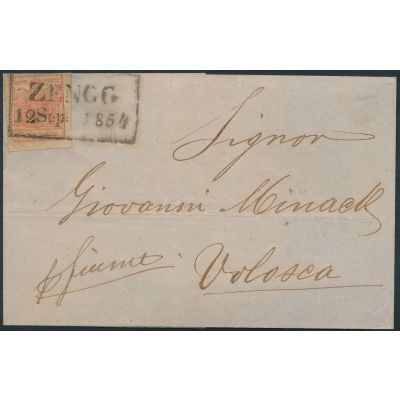 ZENGG
12 Sep. 1854
Signor
Giovanni Minack
p Fiume.
Volosca